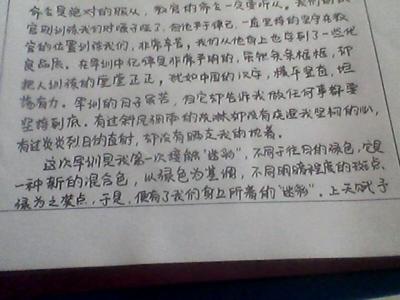 命令是绝对的服从,教官的命令一定要听从。我们的教
官则训练我们对嗓子哑了,但他严于律己,一直坚持的坚守在教
官的位置训练我们,非常辛苦。我们从他身上也学到了一些优
良品质。在军训中记得是非常严明的,条条框框,却
把人训练的堂堂正正,犹如中国的汉字,横平竖直,坦
荡有力。军训的日子虽苦,但它却告诉我做任何事都要
坚持到底。有过斜风细雨的夜淋却没有浇湮我坚韧的心,
有过炎炎烈日的直射,却没有晒去我的执着。
这次军训是我第一次接触"迷彩",不同于往日的绿色,它是
一种新的混合色,以绿色为基调,不同明暗程度的斑点、
绿为之装点,于是,便有了我们身上所着的"迷彩"。上天赋予